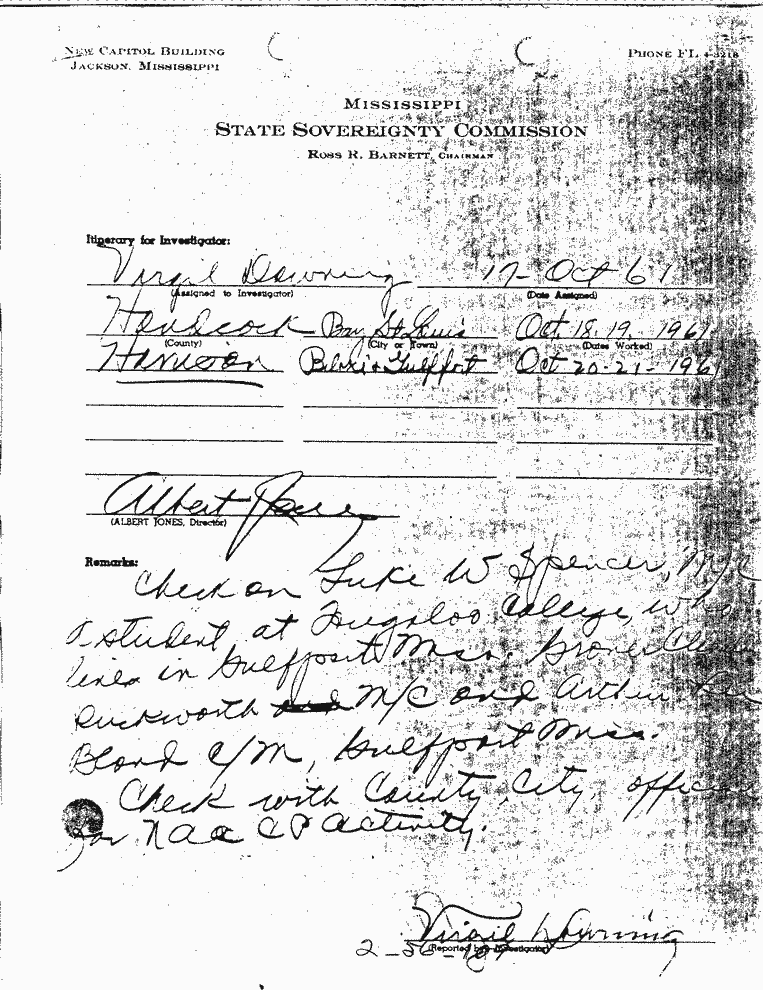 NEW CAPITOL BUILDING
JACKSON, MISSISSIPPI
PHONE FL 4-3218
MISSISSIPPI
STATE SOVEREIGNTY COMMISSION
ROSS R. BARNETT, CHAIRMAN
Itinerary for Investigator:
Virgil Downing 17- Oct 61
(Assigned to Investigator) (Date Assigned)
Handcock Bay St Louis Oct. 18-19- 1961
(County) (City or Town) (Dates Worked)
Harrison Biloxi & Gulfport Oct 20-21- 196
Albert Jones
(ALBERT JONES, Director)
Remarks:
Check on Luke W Spencer, M/C
a student at Tugaloo College, who
lives in Gulfport Miss. Grover
Duckworth M/C and Arthur
Bland C/M, Gulfport Miss.
Check with County, City,
for NAACP activity.
Virgil Downing
(Reported by Investigator)